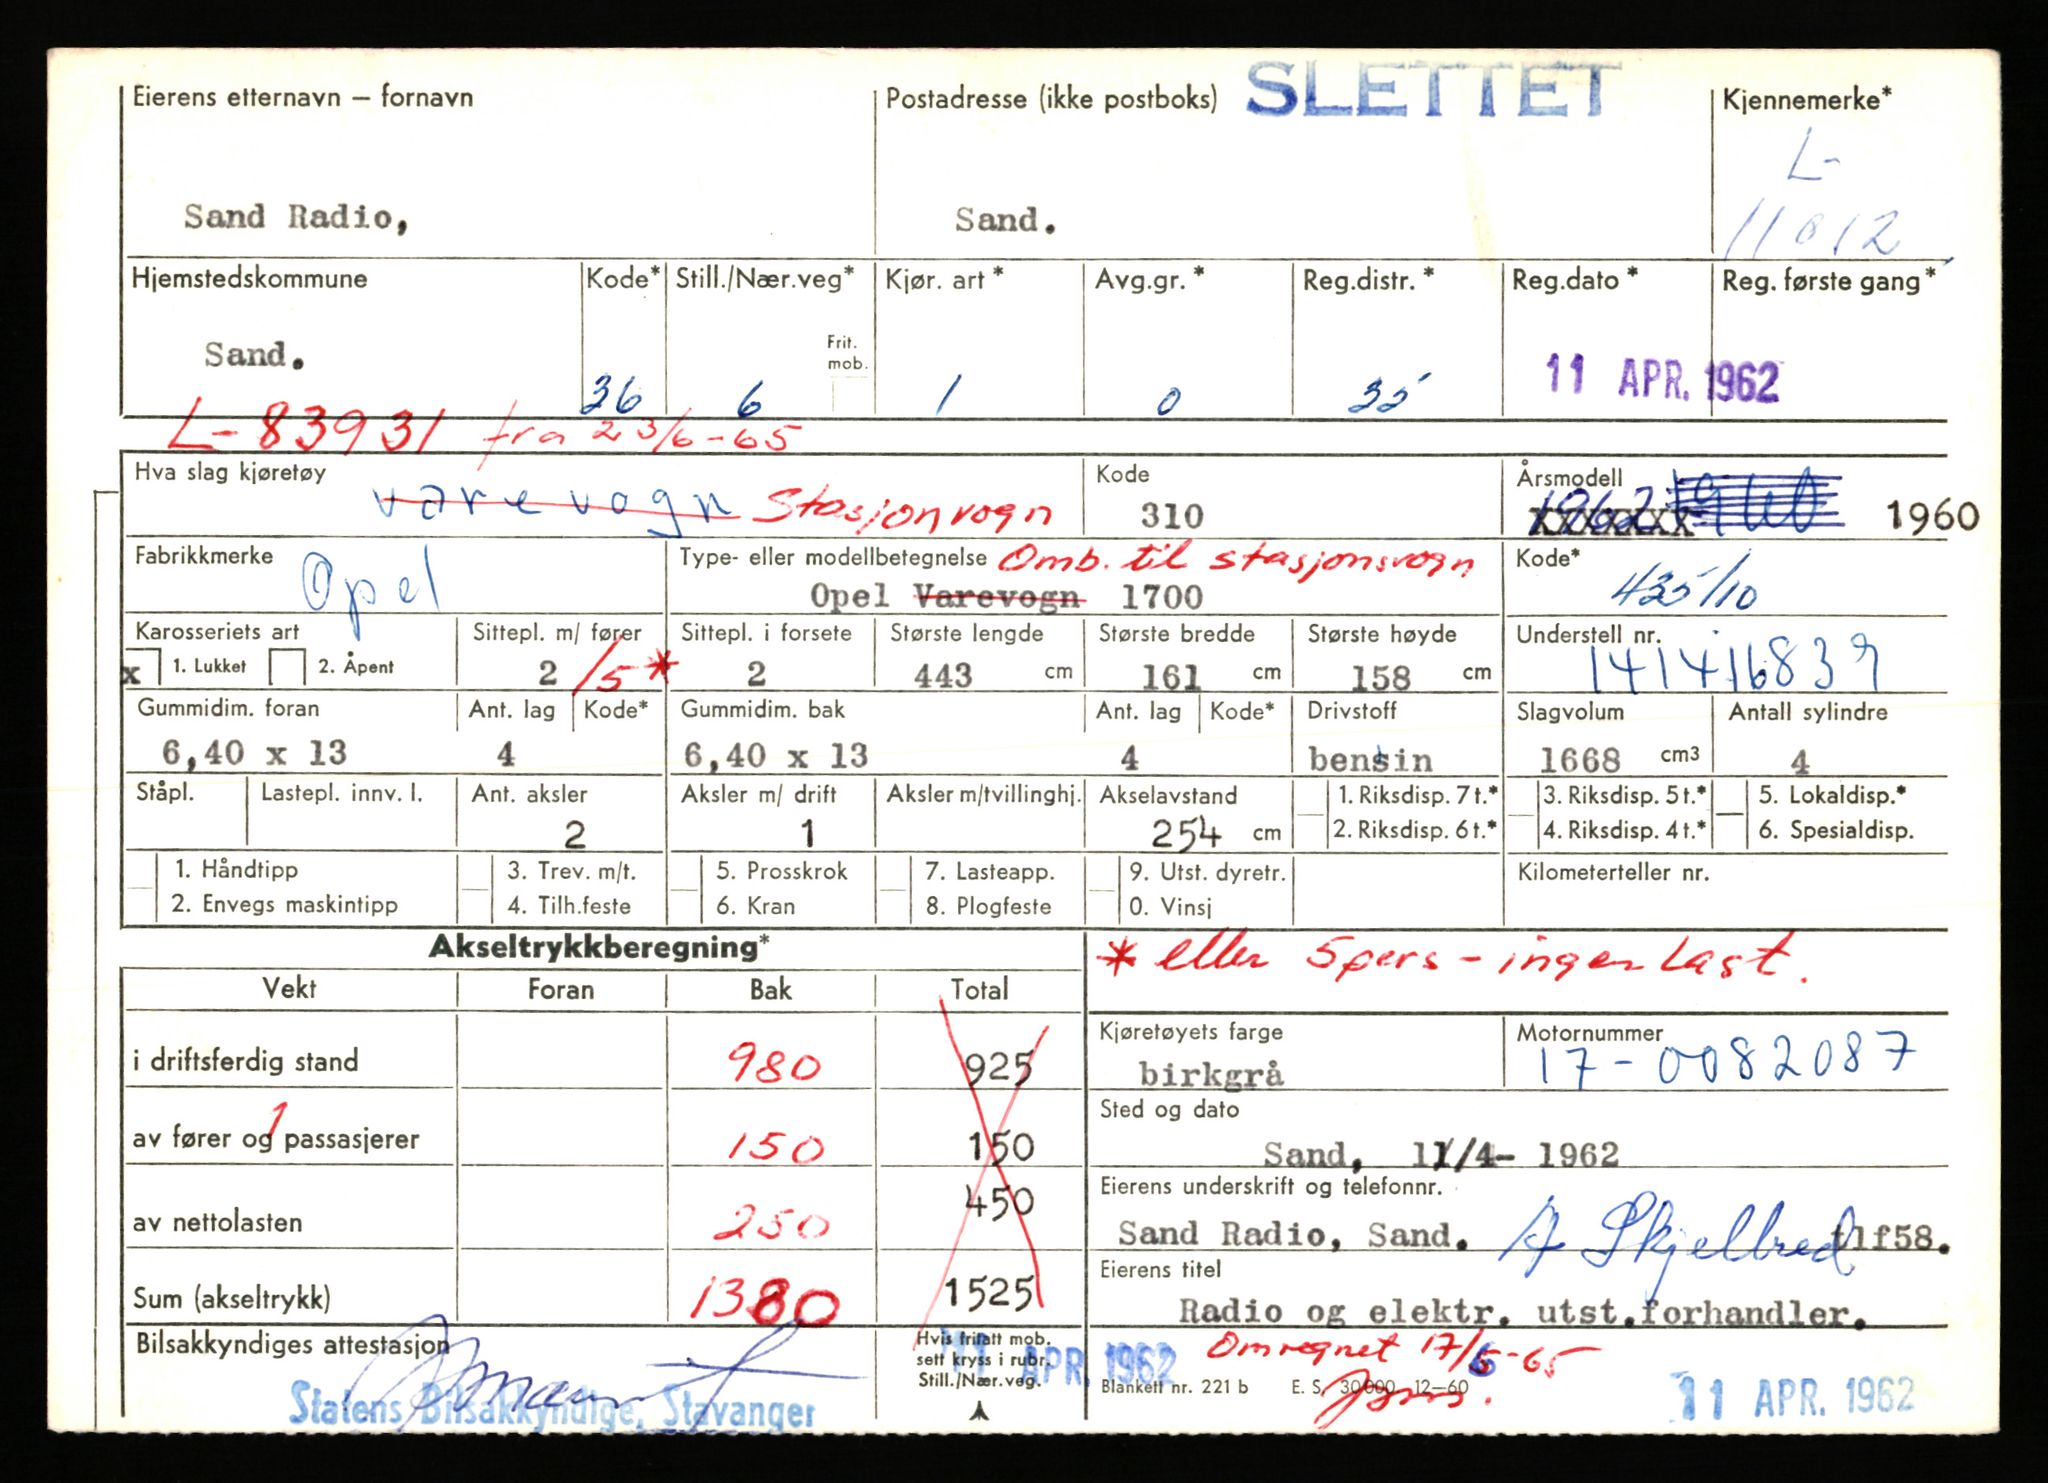 SLETTET
Eierens etternavn – fornavn Postadresse (ikke postboks) Kjennemerke*
L-
Sand Radio, Sand. 11012
Hjemstedskommune Kode* Still./Nær.veg* Kjør. art* Avg.gr.* Reg.distr.* Reg.dato* Reg. første gang*
Frit. mob.
Sand. 36 6 1 0 35 11 APR. 1962
L-83931 fra 23/6-65
Hva slag kjøretøy Kode Årsmodell
varevogn Stasjonvogn 310 1962 1960
Fabrikkmerke Type- eller modellbetegnelse Omb. til stasjonsvogn Kode*
Opel Opel Varevogn 1700 435/10
Karosseriets art Sittepl. m/ fører Sittepl. i forsete Største lengde Største bredde Største høyde Understell nr.
x 1. Lukket 2. Åpent 2 /5* 2 443 cm 161 cm 158 cm 141416839
Gummidim. foran Ant. lag Kode* Gummidim. bak Ant. lag Kode* Drivstoff Slagvolum Antall sylindre
6,40 x 13 4 6,40 x 13 4 bensin 1668 cm3 4
Ståpl. Lastepl. innv. l. Ant. aksler Aksler m/ drift Aksler m/tvillinghj. Akselavstand 1. Riksdisp. 7 t.* 3. Riksdisp. 5 t.* 5. Lokaldisp.*
2 1 254 cm 2. Riksdisp. 6 t.* 4. Riksdisp. 4 t.* 6. Spesialdisp.
1. Håndtipp 3. Trev. m/t. 5. Prosskrok 7. Lasteapp. 9. Utst. dyretr. Kilometerteller nr.
2. Envegs maskintipp 4. Tilh.feste 6. Kran 8. Plogfeste 0. Vinsj
Akseltrykkberegning* * eller 5pers - ingen Last.
Vekt Foran Bak Total
Kjøretøyets farge Motornummer
i driftsferdig stand 980 925 birkgrå 17-0082087
Sted og dato
av fører og 1 passasjerer 150 150 Sand, 11/4- 1962
Eierens underskrift og telefonnr.
av nettolasten 250 450 Sand Radio, Sand. A Skjelbred tlf58.
Eierens titel
Sum (akseltrykk) 1380 1525 Radio og elektr. utst.forhandler.
Bilsakkyndiges attestasjon Hvis fritatt mob. sett kryss i rubr. Still./Nær.veg. 11 APR. 1962 Omregnet 17/6-65
Blankett nr. 221 b E. S. 30 000 12–60
Statens Bilsakkyndige, Stavanger 11 APR. 1962